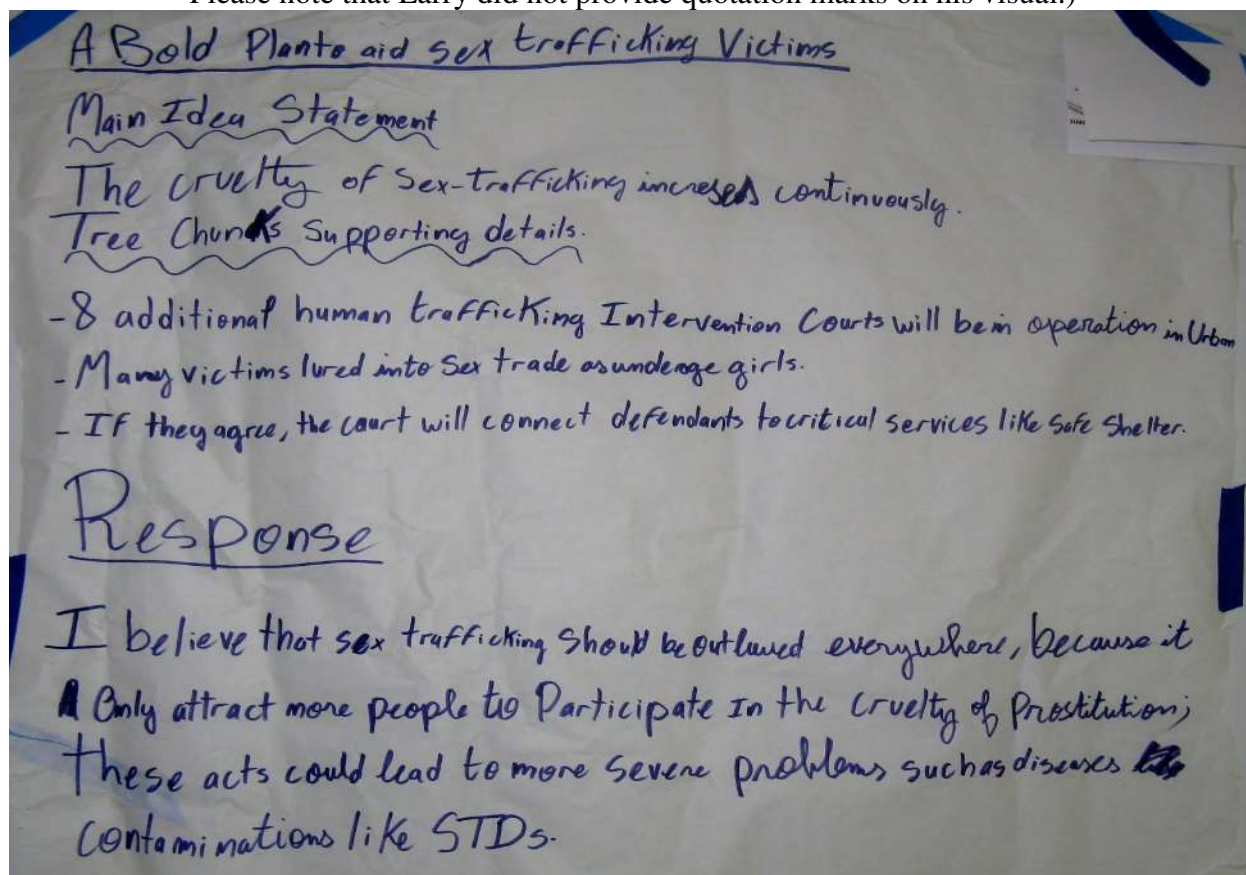 Please note that Larry did not provide quotation marks on his visual.)
A Bold Plan to aid sex trafficking Victims
Main Idea Statement
The cruelty of Sex-trafficking increses continuously.
Tree Chunks Supporting details.
- 8 additional human trafficking Intervention Courts will be in operation in Urban
- Many victims lured into Sex trade as underage girls.
- If they agree, the court will connect defendants to critical services like Safe Shelter.
Response
I believe that sex trafficking should be outlawed everywhere, because it
Only attract more people to Participate In the cruelty of Prostitution;
these acts could lead to more severe problems such as diseases
contaminations like STDs.